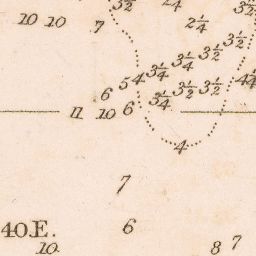 3½ 2¼ 3½
10 10 7 2¼
3½
3¼ 3½
5 4 3¼ 4¼
6 3¼ 3½ 3½
11 10 6
4
7
40.E. 6
10 8 7